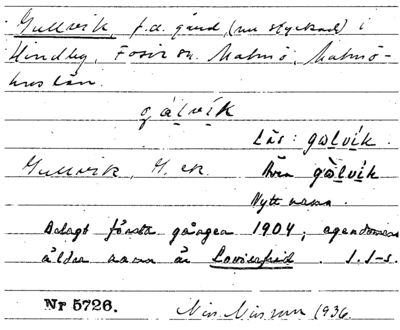 Gullvik, f.d. gård, (nu styckad) i
Hindby, Fosie sn. Malmö, Malmö-
hus län.
gàlvík
Läs: gɷlvik.
Gullvik, H. ek. Även gɷ̀lvík
Nytt namn.
Belagt första gången 1904; egendomens
äldre namn är Lovisefrid. I. I-s.
Nr 5726. Nils Nilsson 1936.